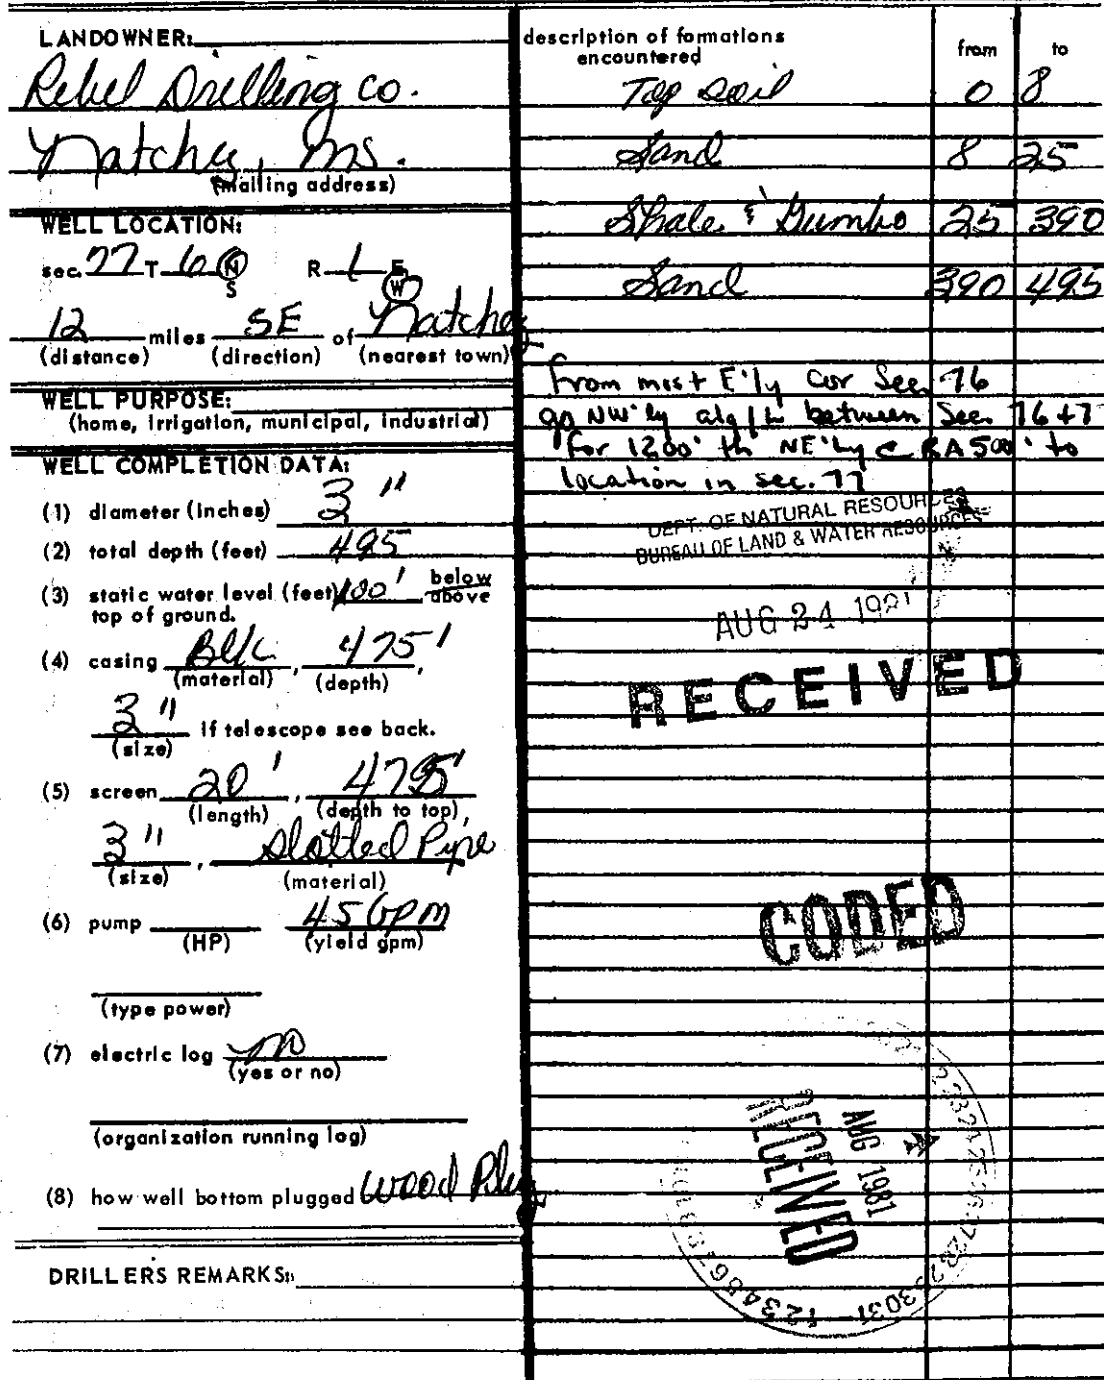 LANDOWNER:
Rebel Drilling Co.
Natchez, Ms.
(mailing address)
WELL LOCATION:
sec. 77 T 6 N R 1 E
S W
12 miles SE of Natchez
(distance) (direction) (nearest town)
WELL PURPOSE:
(home, irrigation, municipal, industrial)
WELL COMPLETION DATA:
(1) diameter (inches) 3"
(2) total depth (feet) 495
(3) static water level (feet) 100' below
above
top of ground.
(4) casing Blk, 475',
(material) (depth)
3" if telescope see back.
(size)
(5) screen 20', 475'
(length) (depth to top),
3", Slotted Pipe
(size) (material)
(6) pump 45 GPM
(HP) (yield gpm)
(type power)
(7) electric log no
(yes or no)
(organization running log)
(8) how well bottom plugged Wood Plug
DRILLERS REMARKS:
description of formations
encountered
from to
Top Soil 0 8
Sand 8 25
Shale & Gumbo 25 390
Sand 390 495
From most E'ly cor Sec. 76
go NW'ly alg between Sec. 76 + 7
for 1200' th NE'ly @ RA 500' to
location in sec. 77
DEPT. OF NATURAL RESOURCES
BUREAU OF LAND & WATER RESOURCES
AUG 24 1981
RECEIVED
CODED
RECEIVED
AUG 1981